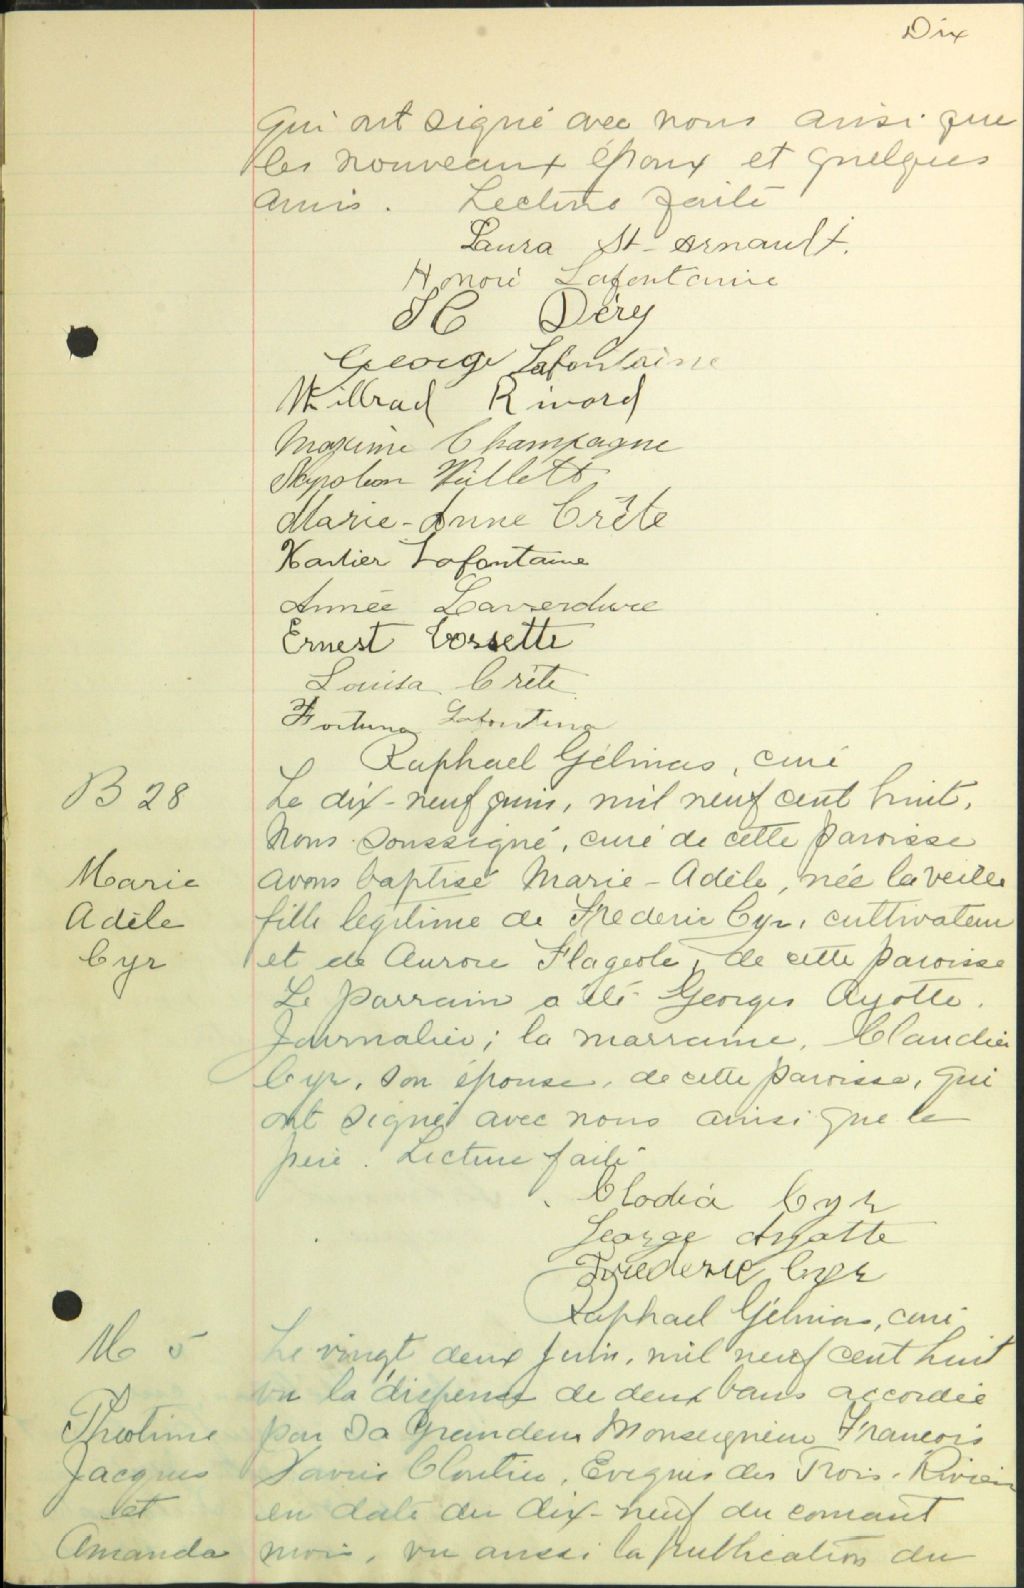 Dix
qui ont signé avec nous ainsi que
les nouveaux époux et quelques
amis. Lecture faite
Laura St-Arnault.
Honoré Lafontaine
Déry
George Lafontaine
Willbrad Rivard
Maxime Champagne
Napoleon Villett
Marie-Anne Crête
Xavier Lafontaine
Année Laverdure
Ernest Cossette
Louisa Crête
Fortuna Lafontina
Raphael Gélinas, curé
B 28
Marie
Adèle
Cyr
Le dix-neuf juin, mil neuf cent huit,
Nous soussigné, curé de cette paroisse
avons baptisé Marie-Adèle, née la veille
fille légitime de Frederic Cyr, cultivateur
et de Aurore Flageole, de cette paroisse
Le parrain a été Georges Ayotte,
Journalier; la marraine, Claudia
Cyr, son épouse, de cette paroisse, qui
ont signé avec nous ainsi que le
père. Lecture faite
Clodia Cyr
George Ayotte
Frederic Cyr
Raphael Gélinas, curé
M 5
Theotime
Jacques
et
Amanda
Le vingt deux Juin, mil neuf cent huit
vu la dispense de deux bans accordée
par Sa Grandeur Monseigneur François
Xavier Cloutier, Evêque des Trois-Rivières
en date du dix-neuf du courant
mois, vu aussi la publication du